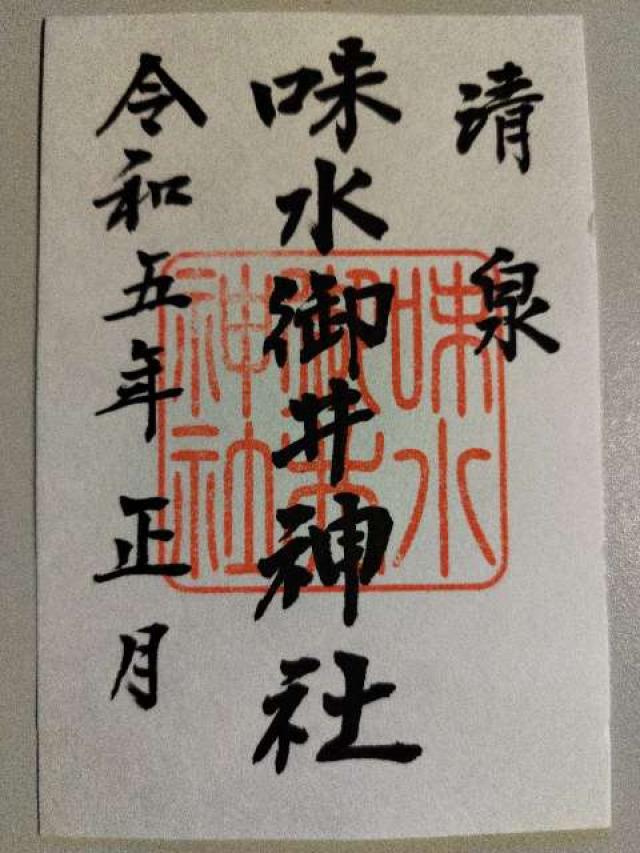 清泉
味水御井神社
令和五年 正月
味水
御井
神社